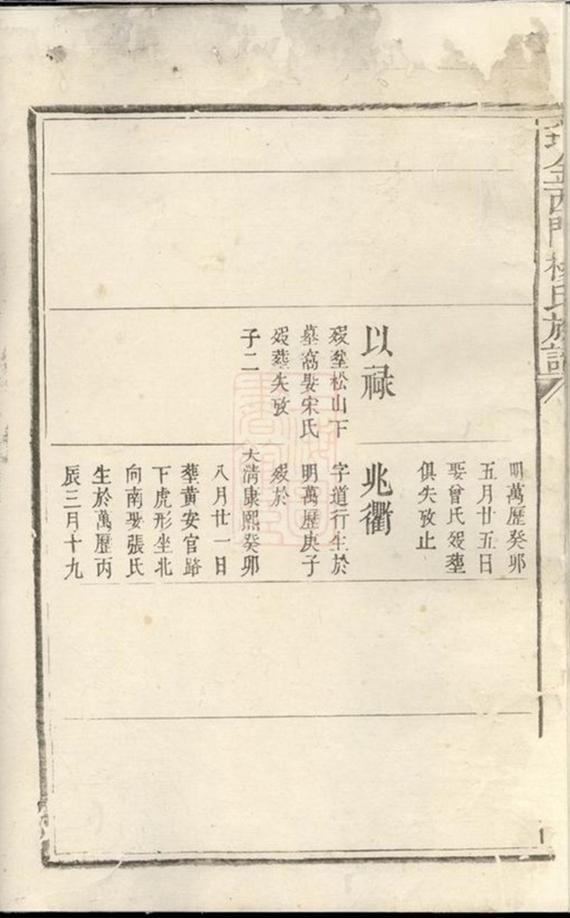 金西門楊氏族譜
以祿
歿塟松山下
墓窩娶宋氏
歿塟失攷
子二
明萬歷癸卯
五月廿五日
娶曾氏歿塟
俱失攷止
兆衢
字道行生於
明萬歷庚子
歿於
大淸康熙癸卯
八月廿一日
塟黃安官路
下虎形坐北
向南娶張氏
生於萬歷丙
辰三月十九